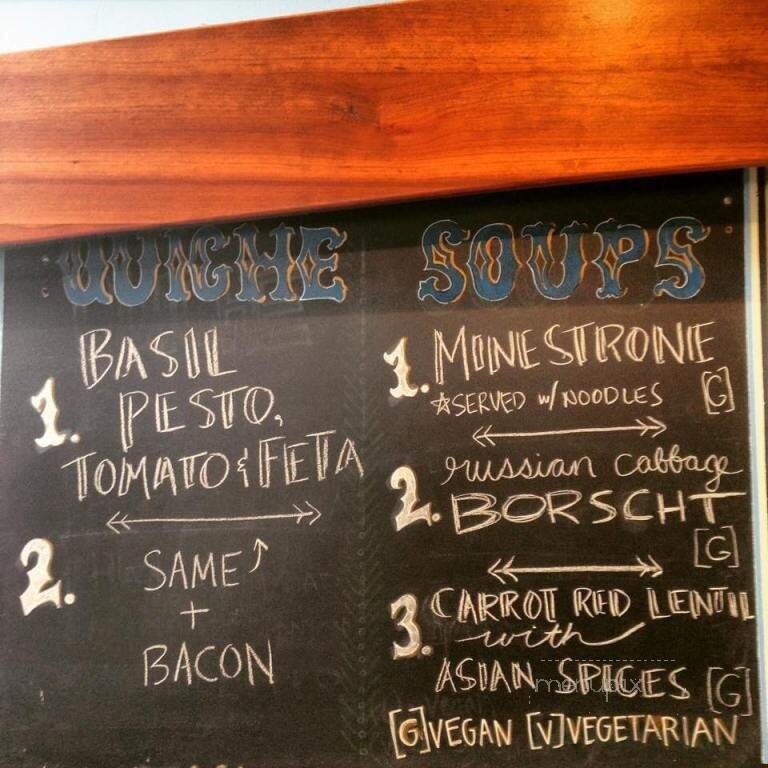 QUICHE
1. BASIL
PESTO,
TOMATO & FETA
2. SAME ↑
+
BACON
SOUPS
1. MINESTRONE
☆SERVED w/ NOODLES [G]
2. russian cabbage
BORSCHT
[G]
3. CARROT RED LENTIL
with
ASIAN SPICES [G]
[G]VEGAN [V]VEGETARIAN
menupix